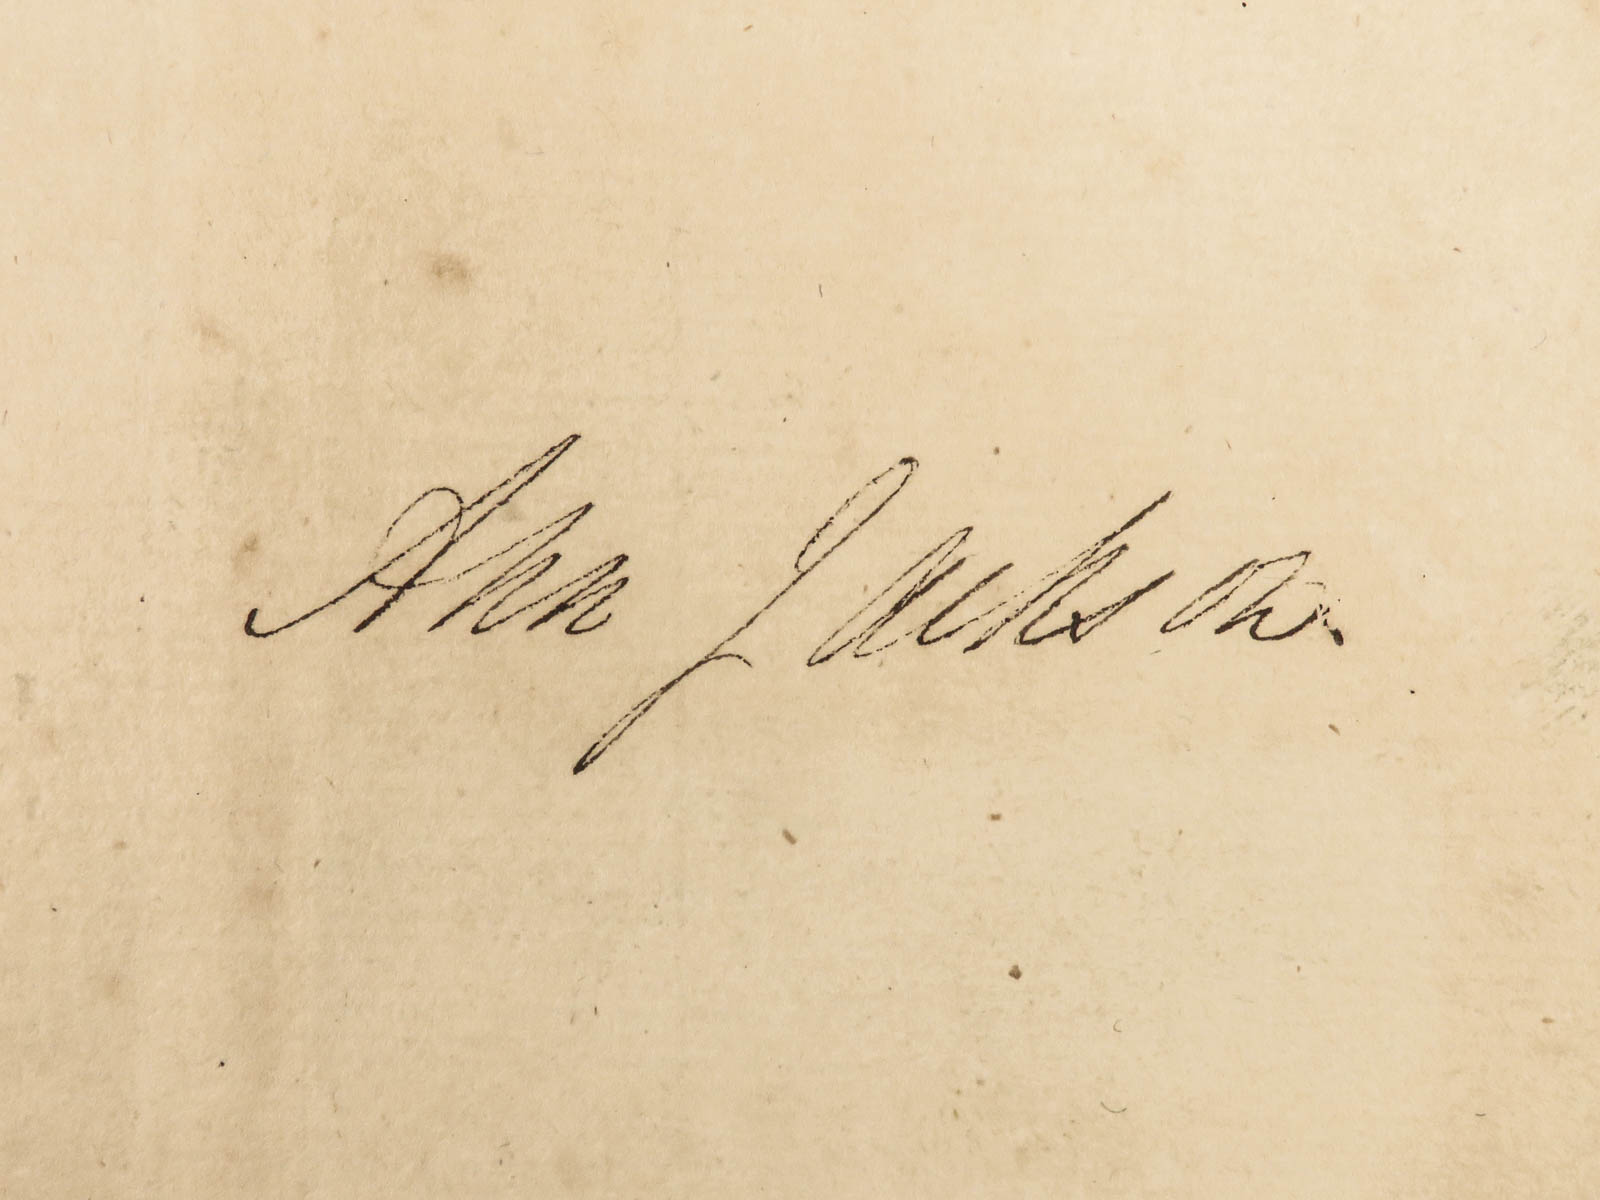 Ann Jackson.